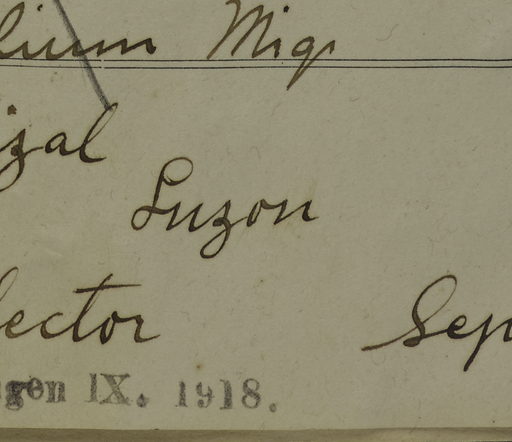 lium Miq.
izal
Luzon
lector Sep
gen IX. 1918.